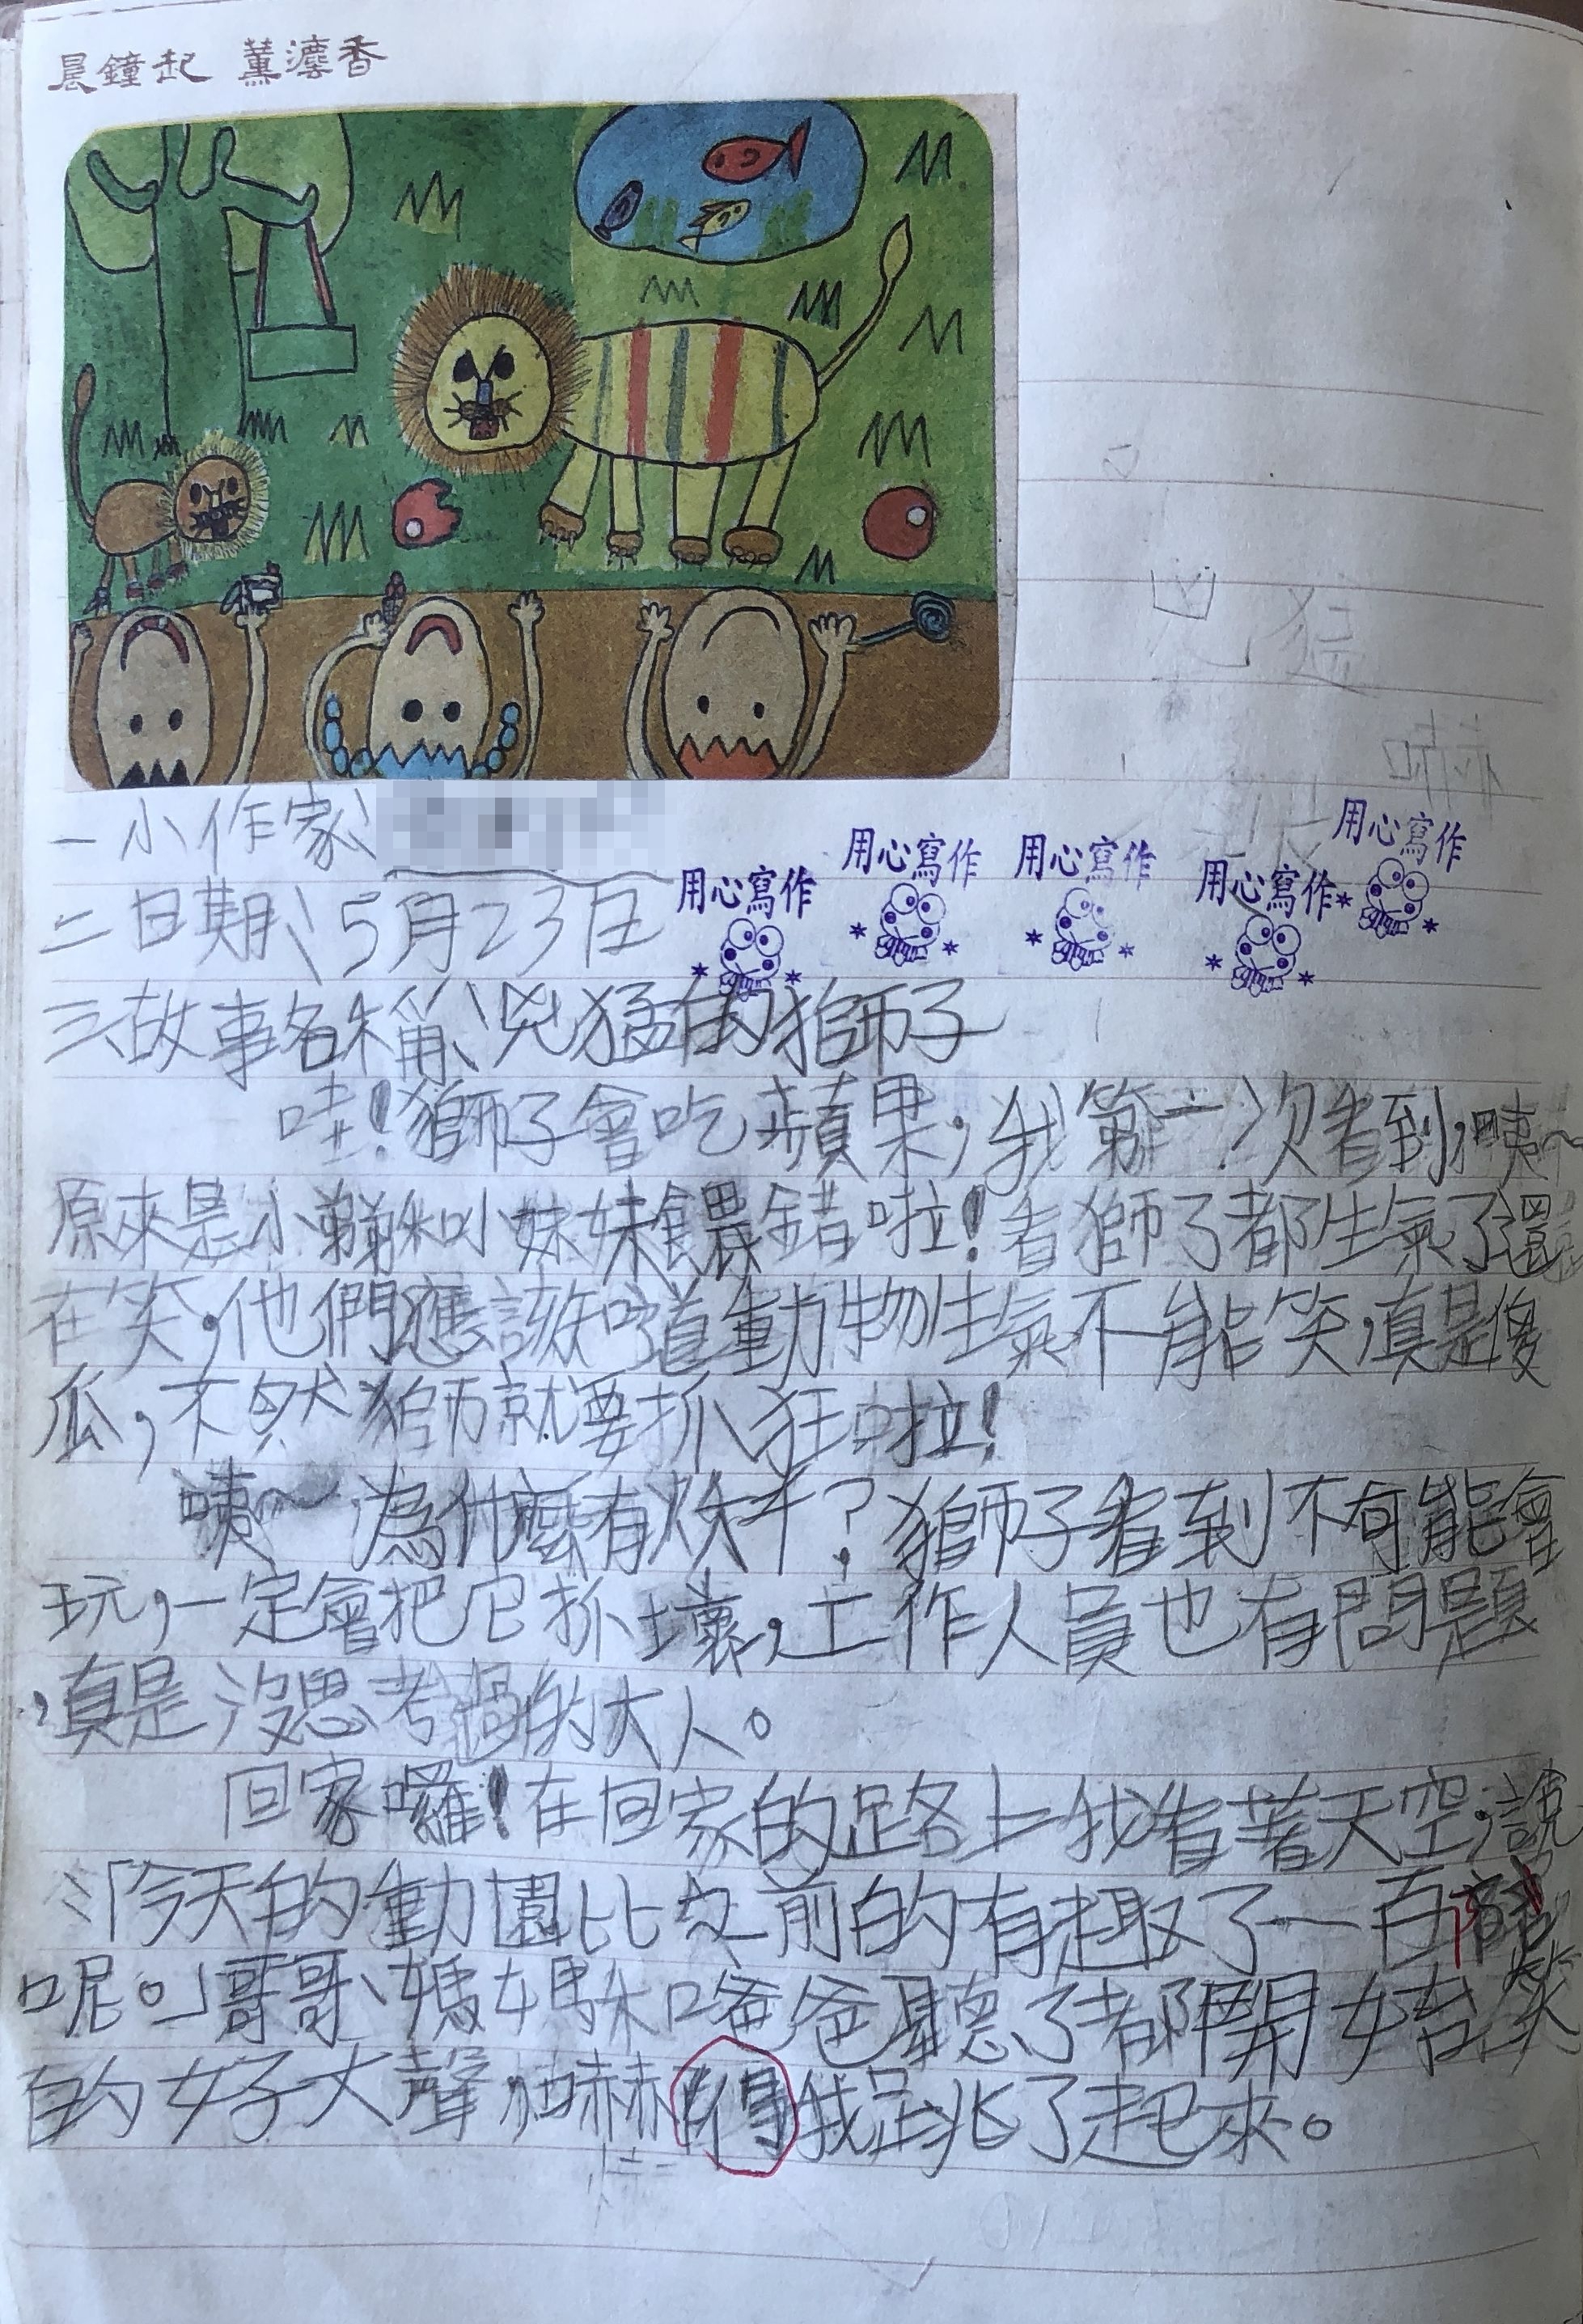 晨鐘起 薰漂香
一小作家、
二日期、5月23日
用心寫作
用心寫作
用心寫作
用心寫作
用心寫作
三故事名稱、兇猛的獅子
哇!獅子會吃蘋果,我第一次看到,咦~
原來是小弟弟和小妹妹餵錯啦!看獅子都生氣了還
在笑,他們應該知道動物生氣不能笑,真是傻
瓜,不然獅就要抓狂啦!
咦~為什麼有秋千?獅子看到不可能會
玩,一定會把它抓壞,工作人員也有問題
,真是沒思考過的大人。
回家囉!在回家的路上我看著天空,說
:「今天的動園比之前的有趣了一百倍
呢。」哥哥、媽媽和爸爸聽了都開始笑
的好大聲,嚇得我跳了起來。